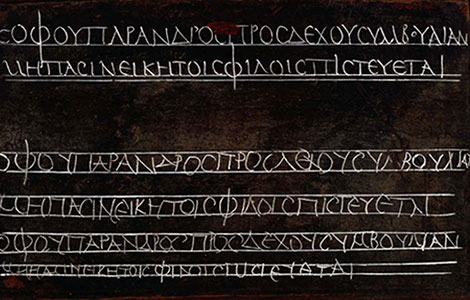 CΟΦΟΥΠΑΡΑΝΔΡΟCΠΡΟCΔΕΧΟΥCΥΜΒΟΥΛΙΑΝ
ΜΗΠΑCΙΝΕΙΚΗΤΟΙCΦΙΛΟΙCΠΙCΤΕΥΕΤΑΙ
ΟΦΟΥΠΑΡΑΝΔΡΟCΠΡΟCΔΕΧΟΥCΥΜΒΟΥΛΙΑ
ΜΗΠΑCΙΝΕΙΚΗΤΟΙCΦΙΛΟΙCΠΙCΤΕΥΕΤΑΙ
ΟΦΟΥΠΑΡΑΝΔΡΟCΠΡΟCΔΕΧΟΥCΥΜΒΟΥΛΙΑΝ
ΜΗΠΑCΙΝΕΙΚΗΤΟΙCΦΙΛΟΙCΠΙCΤΕΥΕΤΑΙ